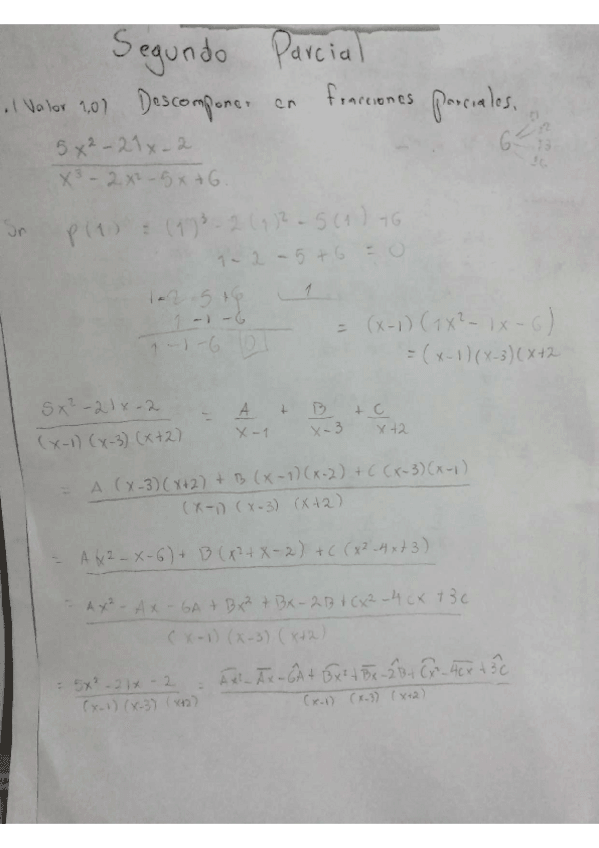 Segundo Parcial
.(Valor 1,0) Descomponer en fracciones parciales.
5x² - 21x - 2
x³ - 2x² - 5x + 6.
6
P(1) = (1)³ - 2(1)² - 5(1) + 6
1 - 2 - 5 + 6 = 0
1 - 2 - 5 + 6 1
1 - 1 - 6
1 - 1 - 6 0
= (x-1)(1x² - 1x - 6)
= (x-1)(x-3)(x+2
5x² - 21x - 2 = A + B + C
(x-1)(x-3)(x+2) x-1 x-3 x+2
= A(x-3)(x+2) + B(x-1)(x-2) + C(x-3)(x-1)
(x-1)(x-3)(x+2)
= A(x² - x - 6) + B(x² + x - 2) + C(x² - 4x + 3)
= Ax² - Ax - 6A + Bx² + Bx - 2B + Cx² - 4Cx + 3C
(x-1)(x-3)(x+2)
= 5x² - 21x - 2 = Ax² - Ax - 6A + Bx² + Bx - 2B + Cx² - 4Cx + 3C
(x-1)(x-3)(x+2) (x-1)(x-3)(x+2)